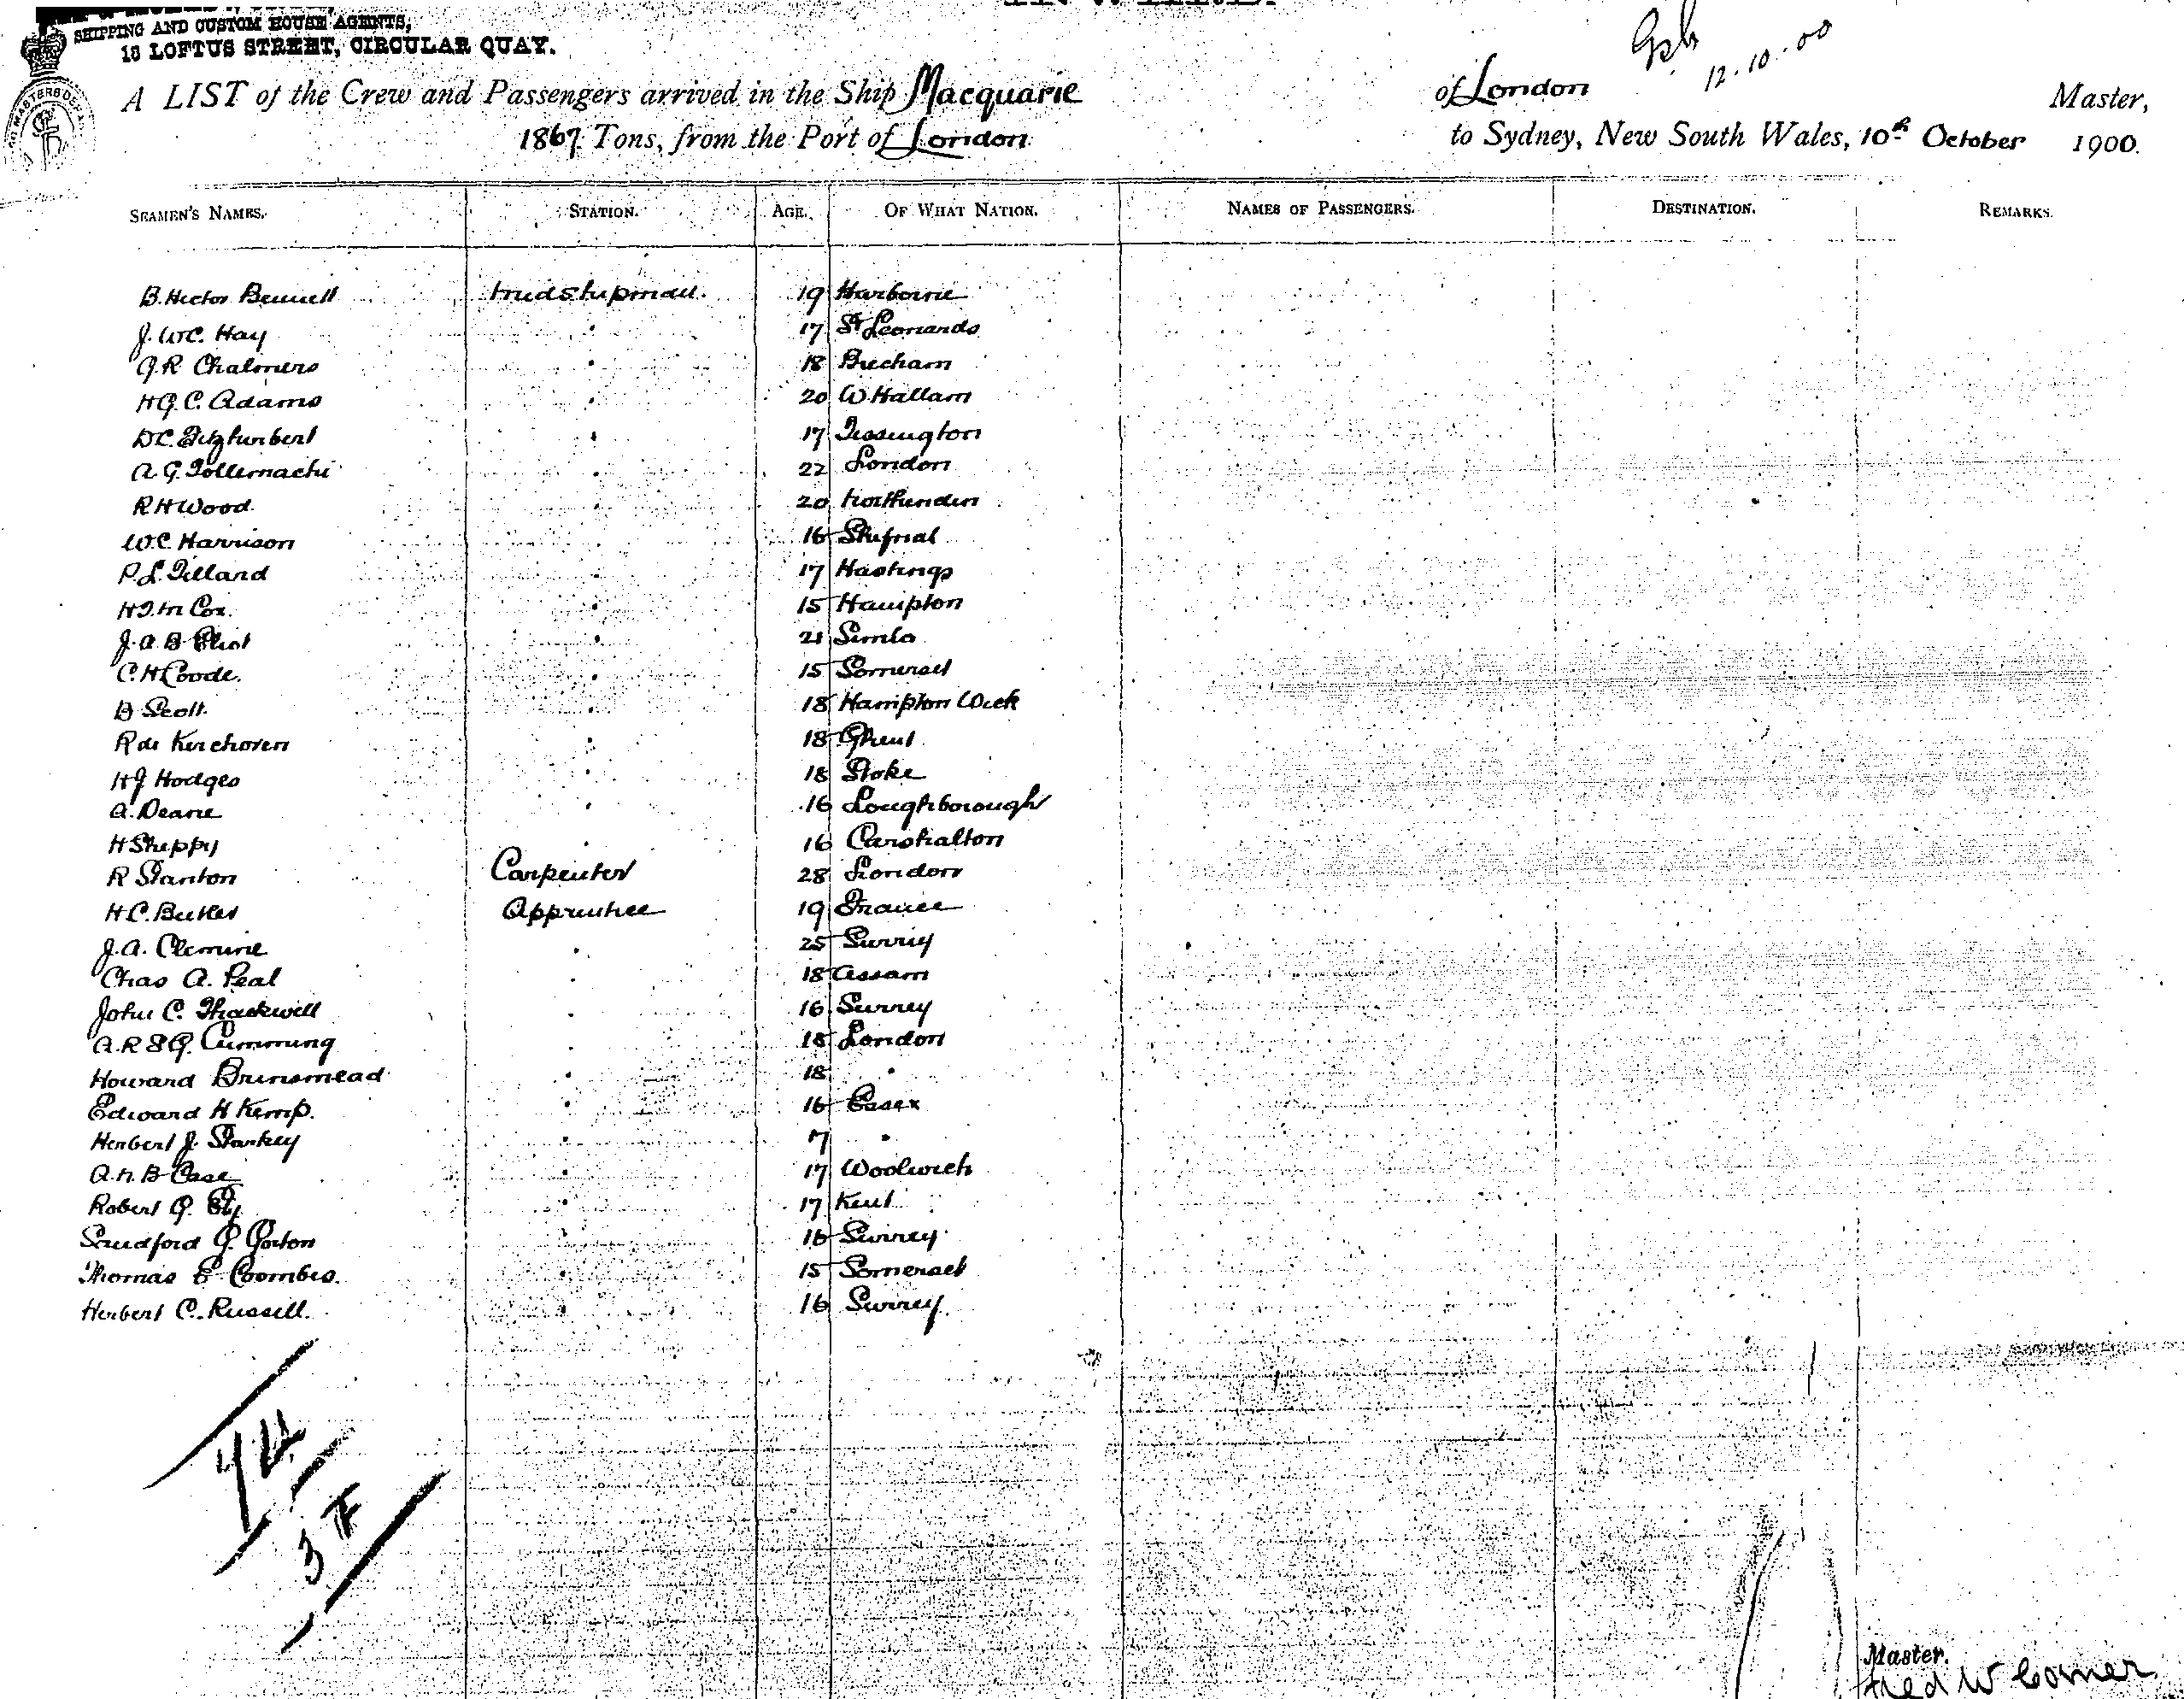 SHIPPING AND CUSTOM HOUSE AGENTS,
18 LOFTUS STREET, CIRCULAR QUAY.
12.10.00
A LIST of the Crew and Passengers arrived in the Ship Macquarie of London Master,
1867 Tons, from the Port of London to Sydney, New South Wales, 10th October 1900.
SEAMEN'S NAMES. STATION. AGE. OF WHAT NATION. NAMES OF PASSENGERS. DESTINATION. REMARKS.
B. Hector Bennett Midshipman. 19 Harborne
J. W.C. Hay " 17 St Leonards
J.R Chalmers " 18 Brecham
H.G.C. Adams " 20 W. Hallam
D.C. Fitzhurbert " 17 Tissington
A.G. Tollemache " 22 London
R H Wood. " 20 Northenden
W.C. Harrison " 16 Shifnal
P.L. Tilland " 17 Hastings
Cox. " 15 Hampton
J.A.B. Eliot " 21 Simla
C.H Coode. " 15 Somerset
B Scott. " 18 Hampton Wick
R de Kerchoven " 18 Ghent
H J Hodges " 18 Stoke
A. Deane " 16 Loughborough
H Sheppy " 16 Carshalton
R Stanton Carpenter 28 London
H.C. Butler Apprentice 19 France
J.A. Clemine " 25 Surrey
Chas A. Peal " 18 Assam
John C. Thackwell " 16 Surrey
A.R S G. Cumming " 18 London
Howard Brinsmead " 18 "
Edward H Kemp. " 16 Essex
Herbert J. Starkey " 17 "
A.N.B Case " 17 Woolwich
Robert G. Ely " 17 Kent
Sandford G. Gorton " 16 Surrey
Thomas E Coombes. " 15 Somerset
Herbert C. Russell. " 16 Surrey.
Master.
Fred W Corner